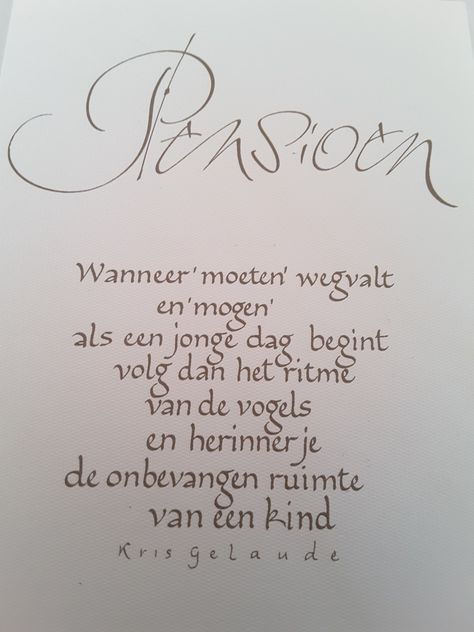 Pensioen
Wanneer 'moeten' wegvalt
en 'mogen'
als een jonge dag begint
volg dan het ritme
van de vogels
en herinner je
de onbevangen ruimte
van een kind
Kris Gelaude